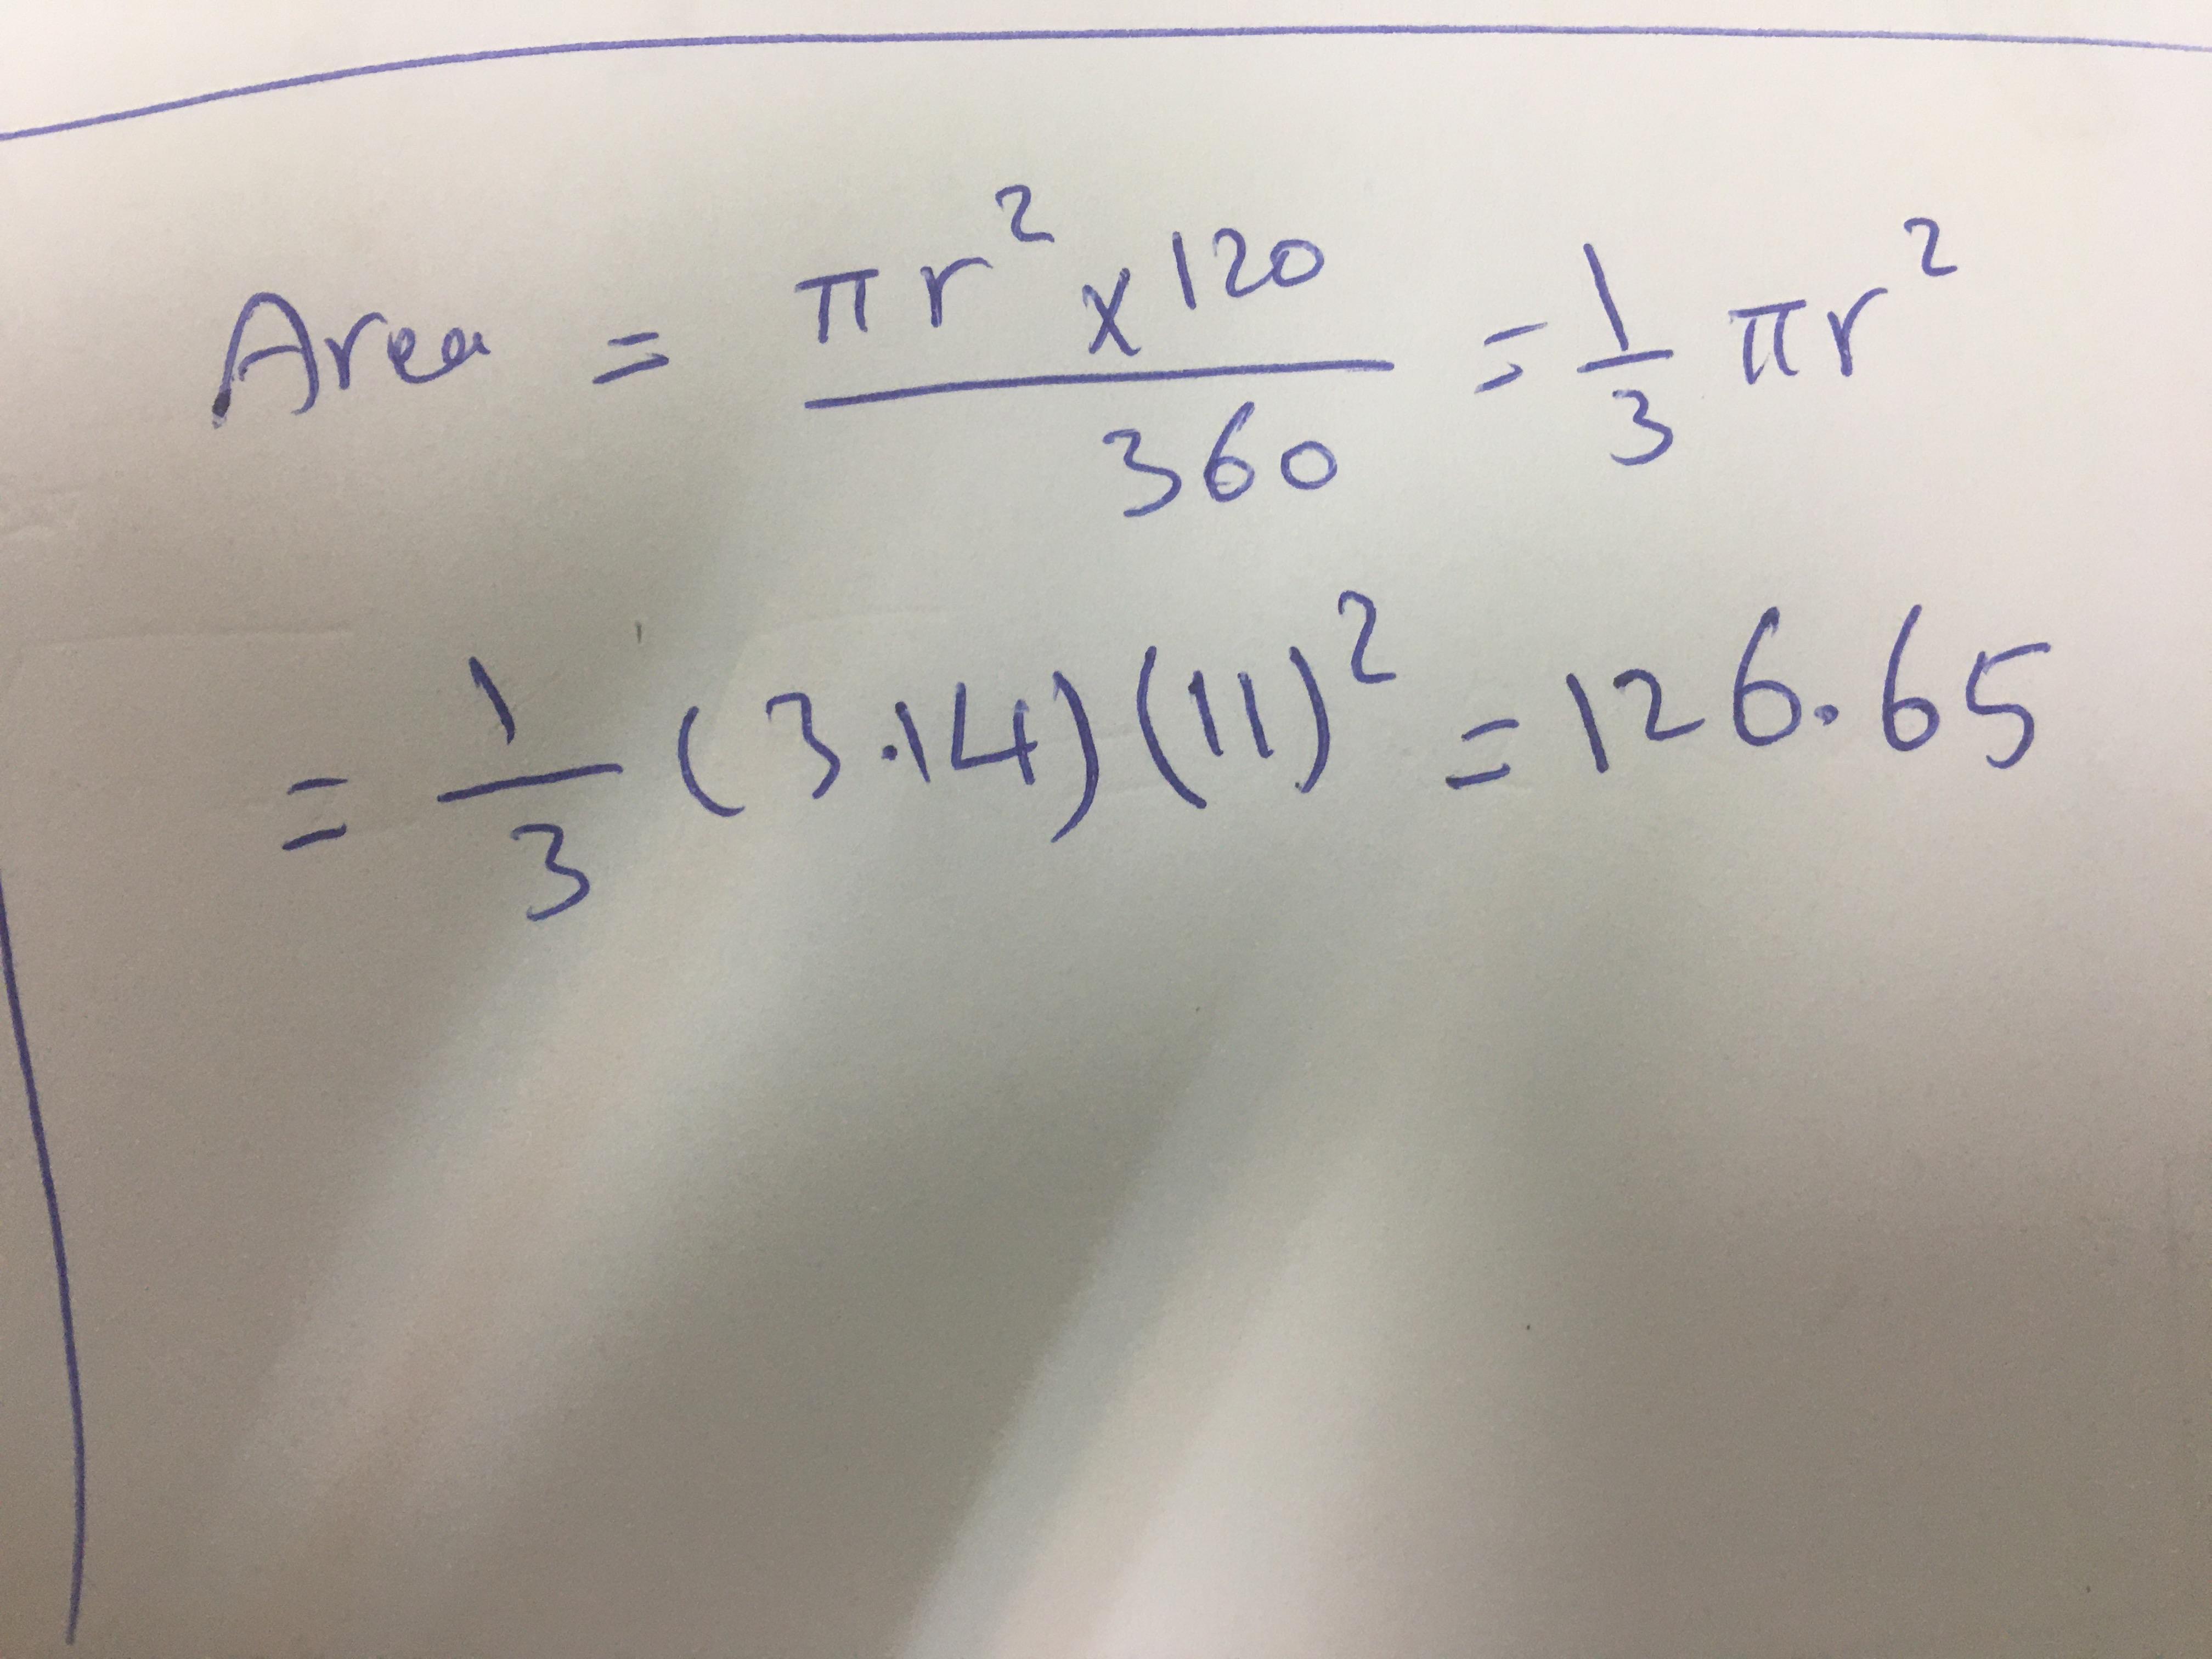 Area = πr² x 120 / 360 = 1/3 πr²
= 1/3 (3.14)(11)² = 126.65